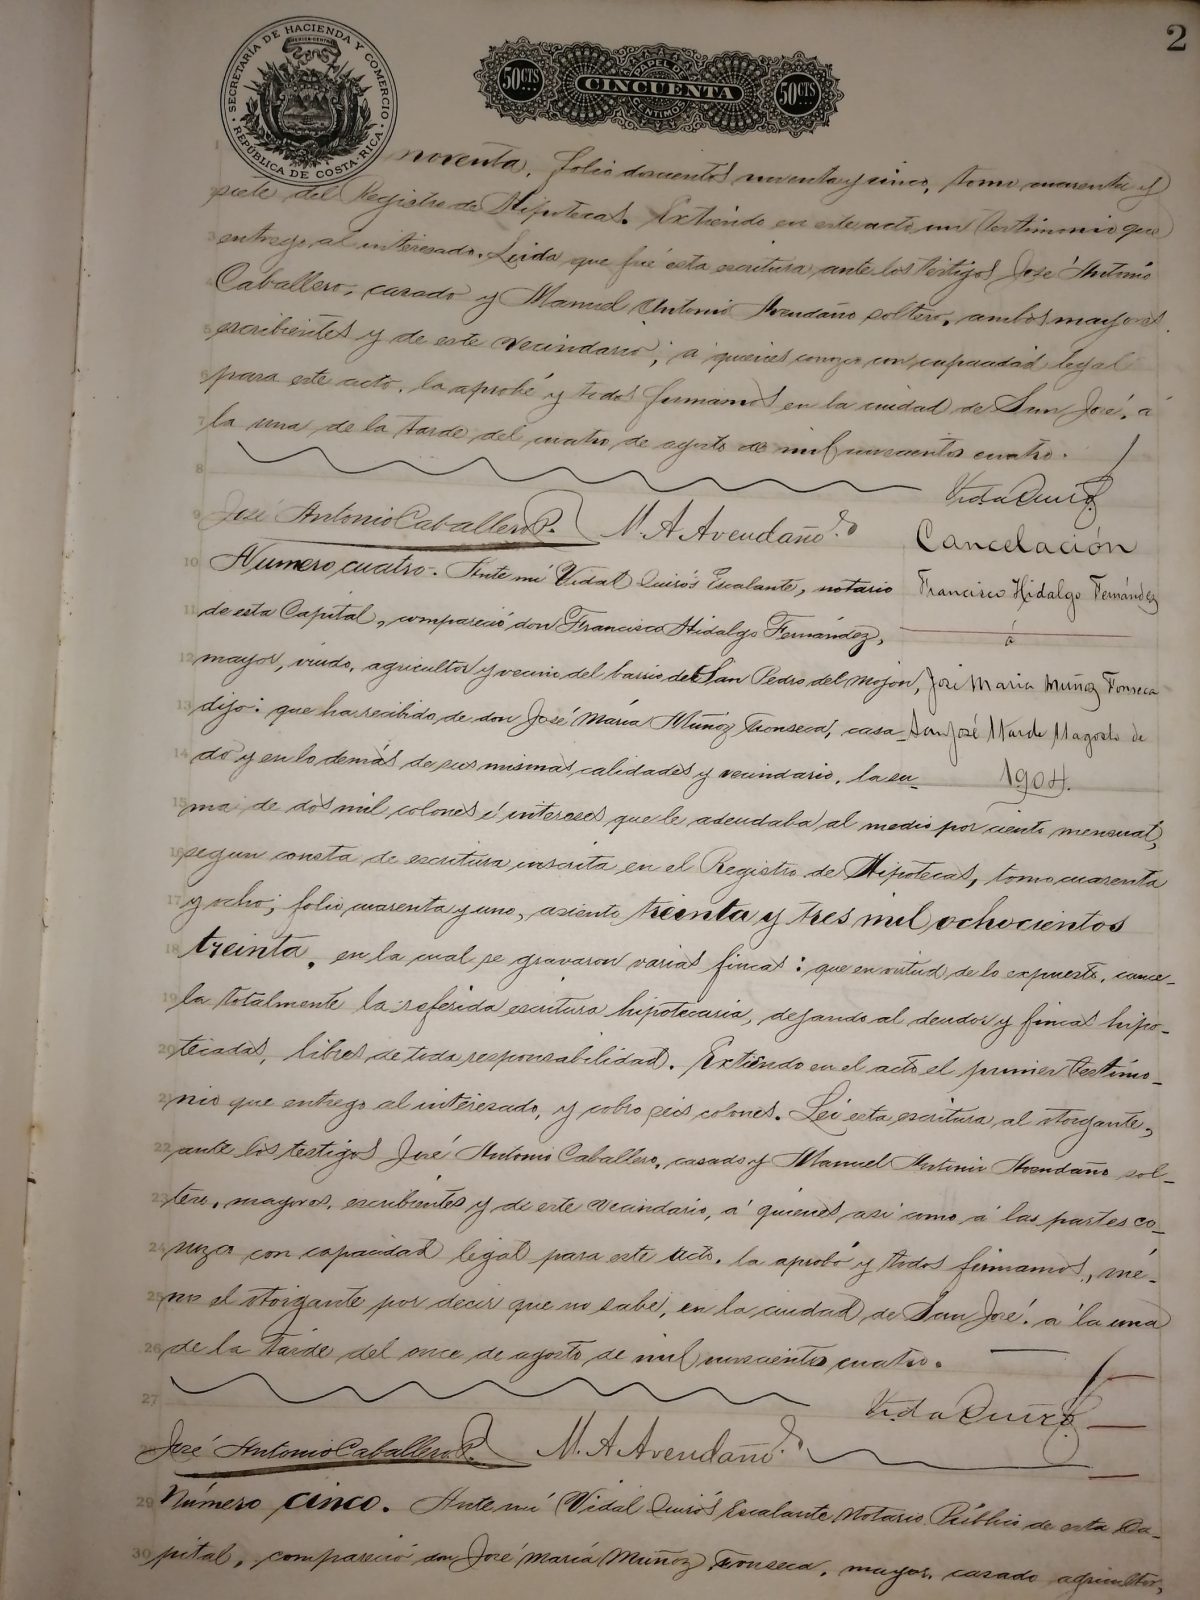 2
SECRETARÍA DE HACIENDA Y COMERCIO
REPÚBLICA DE COSTA RICA
AMERICA CENTRAL
50 CTS PAPEL DE CINCUENTA CENTIMOS 50 CTS
1 noventa, folio doscientos noventa y cinco, tomo cuarenta y
siete del Registro de Hipotecas. Extiendo en este acto un testimonio que
3 entrego al interesado. Leida que fué esta escritura ante los testigos José Antonio
Caballero, casado y Manuel Antonio Avendaño soltero, ambos mayores
5 escribientes y de este vecindario, á quienes conozco con capacidad legal
6 para este acto, la aprobé y todos firmamos en la ciudad de San José, á
7 la una de la tarde del cuatro de agosto de mil novecientos cuatro.
8
Vidal Quirós
9 José Antonio Caballero P. M. A. Avendaño
Cancelación
Francisco Hidalgo Fernández
á
José María Muñoz Fonseca
San José 11 de Agosto de
1904.
10 Numero cuatro. Ante mí Vidal Quirós Escalante, notario
11 de esta Capital, compareció don Francisco Hidalgo Fernández,
12 mayor, viudo, agricultor y vecino del barrio de San Pedro del Mojón,
13 dijo: que ha recibido de don José María Muñoz Fonseca, casa-
14 do y en lo demás de sus mismas calidades y vecindario, la su-
15 ma de dos mil colones é intereses que le adeudaba al medio por ciento mensual,
16 segun consta de escritura inscrita en el Registro de Hipotecas, tomo cuarenta
17 y ocho, folio cuarenta y uno, asiento treinta y tres mil ochocientos
18 treinta, en la cual se gravaron varias fincas: que en virtud de lo expuesto, cance-
19 la totalmente la referida escritura hipotecaria, dejando al deudor y fincas hipo-
20 tecadas, libres de toda responsabilidad. Extiendo en el acto el primer testimo-
21 nio que entrego al interesado, y cobro seis colones. Leí esta escritura al otorgante,
22 ante los testigos José Antonio Caballero, casado y Manuel Antonio Avendaño sol-
23 tero, mayores, escribientes y de este vecindario, á quienes así como á las partes co-
24 nozco con capacidad legal para este acto, la aprobó y todos firmamos, mé-
25 nos el otorgante por decir que no sabe, en la ciudad de San José, á la una
26 de la tarde del once de agosto de mil novecientos cuatro.
27
Vidal Quirós
José Antonio Caballero P. M. A. Avendaño
29 Número cinco. Ante mí Vidal Quirós Escalante Notario Público de esta Ca-
30 pital, compareció don José María Muñoz Fonseca, mayor, casado agricultor,